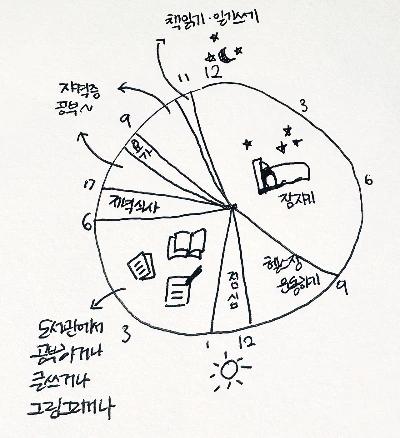 책읽기·일기쓰기
11
12
자격증
공부~
3
9
요가
6
7
저녁식사
잠자기
6
헬스장
운동하기
점심
9
3
1
12
도서관에서
공부하거나
글쓰거나
그림그리거나